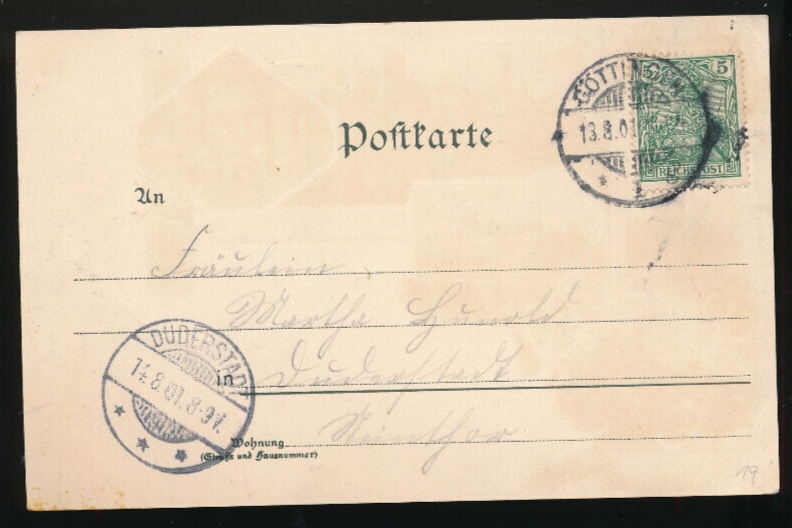 Postkarte
GÖTTINGEN
13.8.01
1
5 5
REICHSPOST
An
Fräulein
Martha Hunold
DUDERSTADT
14.8.01. 8-9V.
in Duderstadt
Steinthor
Wohnung
(Straße und Hausnummer)
19